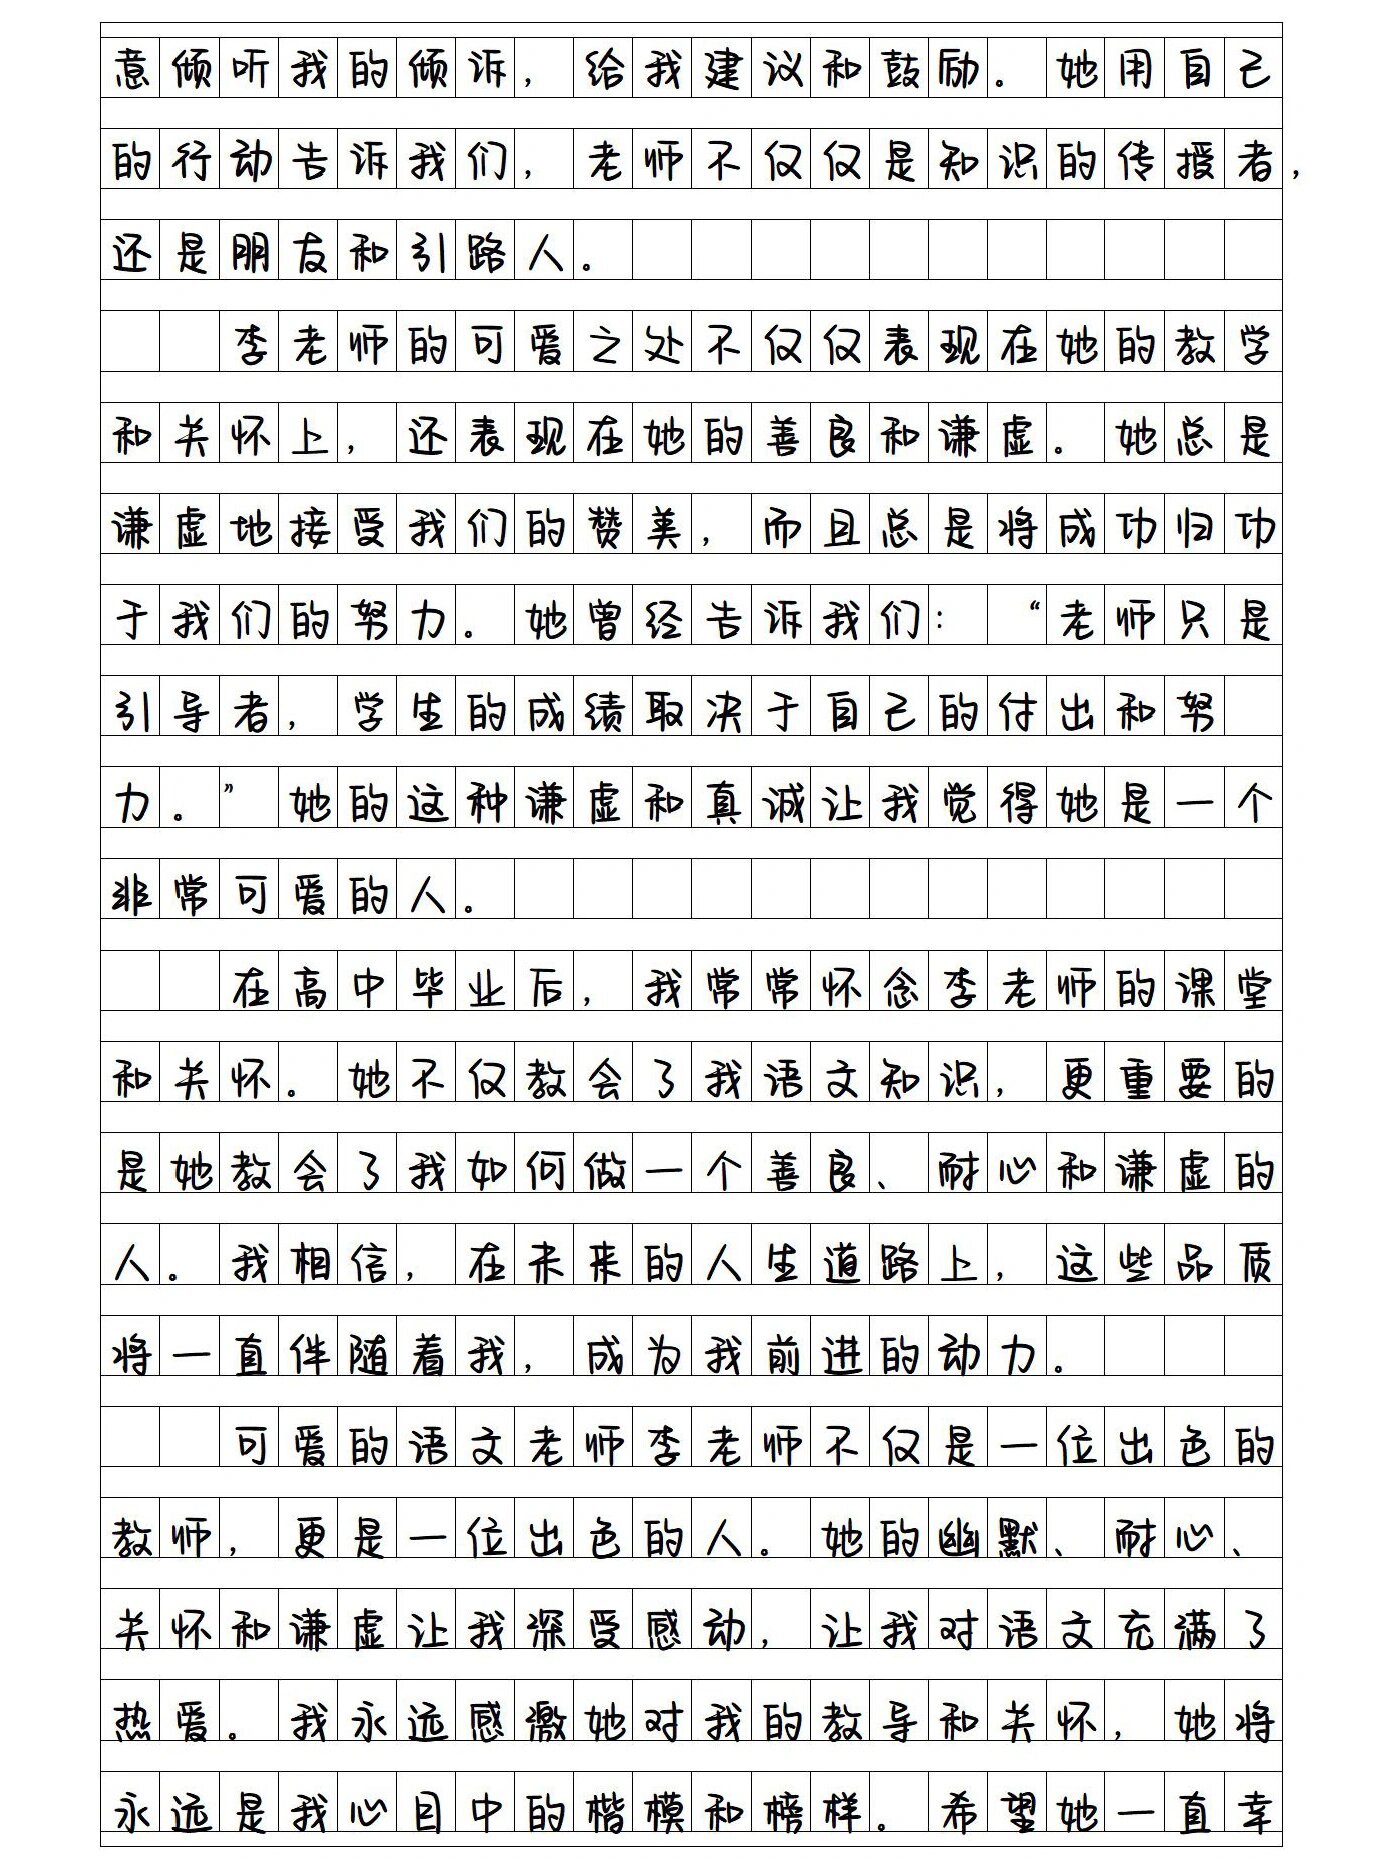 意倾听我的倾诉，给我建议和鼓励。她用自己
的行动告诉我们，老师不仅仅是知识的传授者，
还是朋友和引路人。
李老师的可爱之处不仅仅表现在她的教学
和关怀上，还表现在她的善良和谦虚。她总是
谦虚地接受我们的赞美，而且总是将成功归功
于我们的努力。她曾经告诉我们：“老师只是
引导者，学生的成绩取决于自己的付出和努
力。”她的这种谦虚和真诚让我觉得她是一个
非常可爱的人。
在高中毕业后，我常常怀念李老师的课堂
和关怀。她不仅教会了我语文知识，更重要的
是她教会了我如何做一个善良、耐心和谦虚的
人。我相信，在未来的人生道路上，这些品质
将一直伴随着我，成为我前进的动力。
可爱的语文老师李老师不仅是一位出色的
教师，更是一位出色的人。她的幽默、耐心、
关怀和谦虚让我深受感动，让我对语文充满了
热爱。我永远感激她对我的教导和关怀，她将
永远是我心目中的楷模和榜样。希望她一直幸